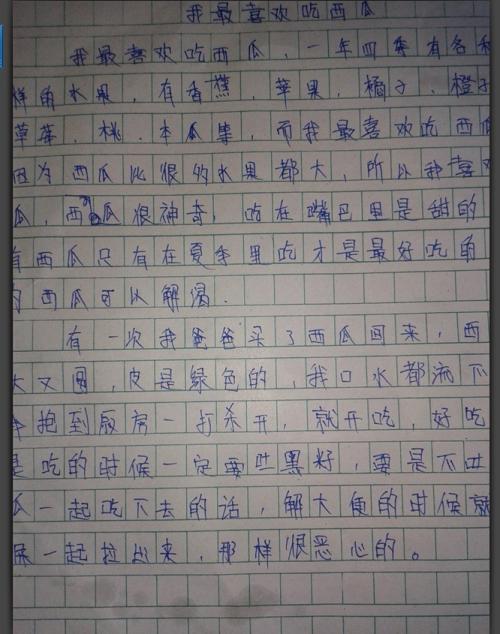 我最喜欢吃西瓜
我最喜欢吃西瓜，一年四季有各种
样的水果，有香蕉，苹果，橘子、橙子
草莓、桃、木瓜等，而我最喜欢吃西
因为西瓜比很多水果都大，所以我喜欢
瓜，西瓜很神奇，吃在嘴巴里是甜的
有西瓜只有在夏季里吃才是最好吃的
的西瓜可以解渴．
有一次我爸爸买了西瓜回来，西
大又圆，皮是绿色的，我口水都流下
抱到厨房一打杀开，就开吃，好吃
是吃的时候一定要些黑籽，要是不
瓜一起吃下去的话，解大便的时候就
屎一起拉出来，那样很恶心的。